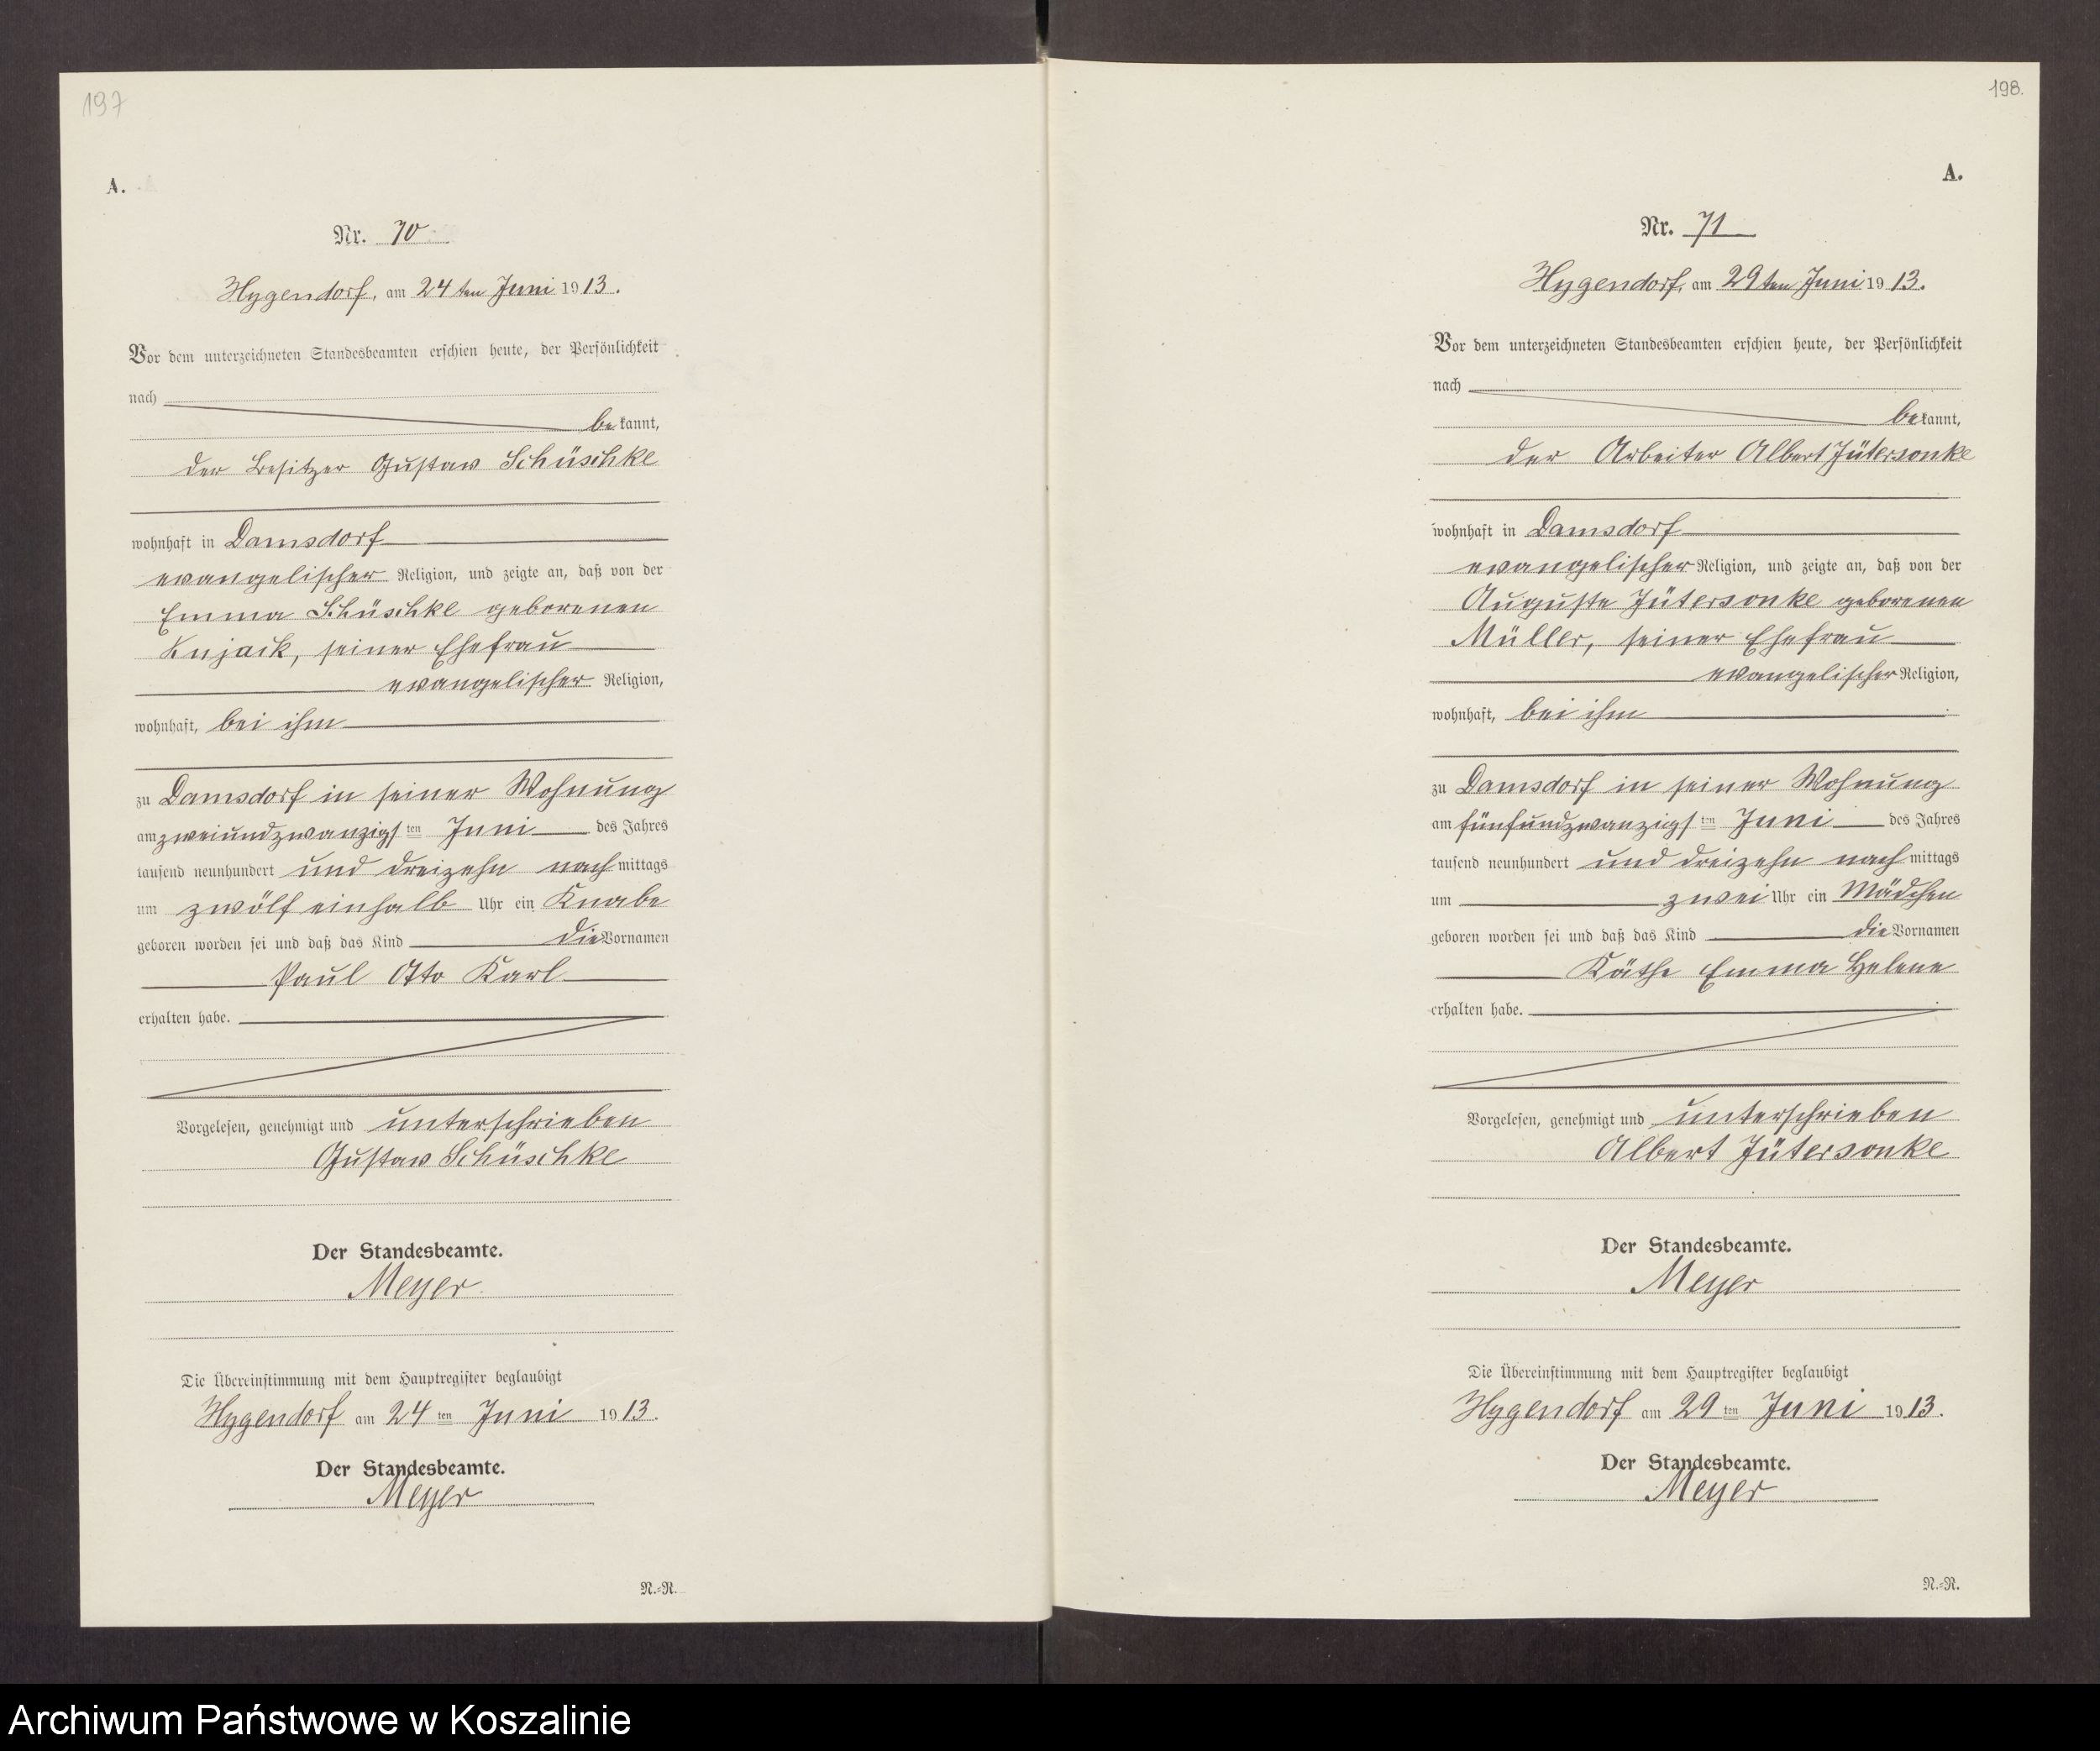 197
A.
Nr. 70
Hygendorf, am 24ten Juni 1913.
Vor dem unterzeichneten Standesbeamten erschien heute, der Persönlichkeit
nach
bekannt,
der Besitzer Gustav Schüschke
wohnhaft in Damsdorf
evangelischer Religion, und zeigte an, daß von der
Emma Schüschke geborenen
Kujack, seiner Ehefrau
evangelischer Religion,
wohnhaft, bei ihm
zu Damsdorf in seiner Wohnung
am zweiundzwanzigsten Juni des Jahres
tausend neunhundert und dreizehn nachmittags
um zwölf einhalb Uhr ein Knabe
geboren worden sei und daß das Kind die Vornamen
Paul Otto Karl
erhalten habe.
Vorgelesen, genehmigt und unterschrieben
Gustav Schüschke
Der Standesbeamte.
Meyer
Die Übereinstimmung mit dem Hauptregister beglaubigt
Hygendorf am 24ten Juni 1913.
Der Standesbeamte.
Meyer
N.=R.
198.
A.
Nr. 71
Hygendorf, am 29ten Juni 1913.
Vor dem unterzeichneten Standesbeamten erschien heute, der Persönlichkeit
nach
bekannt,
der Arbeiter Albert Jütersonke
wohnhaft in Damsdorf
evangelischer Religion, und zeigte an, daß von der
Auguste Jütersonke geborenen
Müller, seiner Ehefrau
evangelischer Religion,
wohnhaft, bei ihm
zu Damsdorf in seiner Wohnung
am fünfundzwanzigsten Juni des Jahres
tausend neunhundert und dreizehn nachmittags
um zwei Uhr ein Mädchen
geboren worden sei und daß das Kind die Vornamen
Käthe Emma Helene
erhalten habe.
Vorgelesen, genehmigt und unterschrieben
Albert Jütersonke
Der Standesbeamte.
Meyer
Die Übereinstimmung mit dem Hauptregister beglaubigt
Hygendorf am 29ten Juni 1913.
Der Standesbeamte.
Meyer
N.=R.
Archiwum Państwowe w Koszalinie